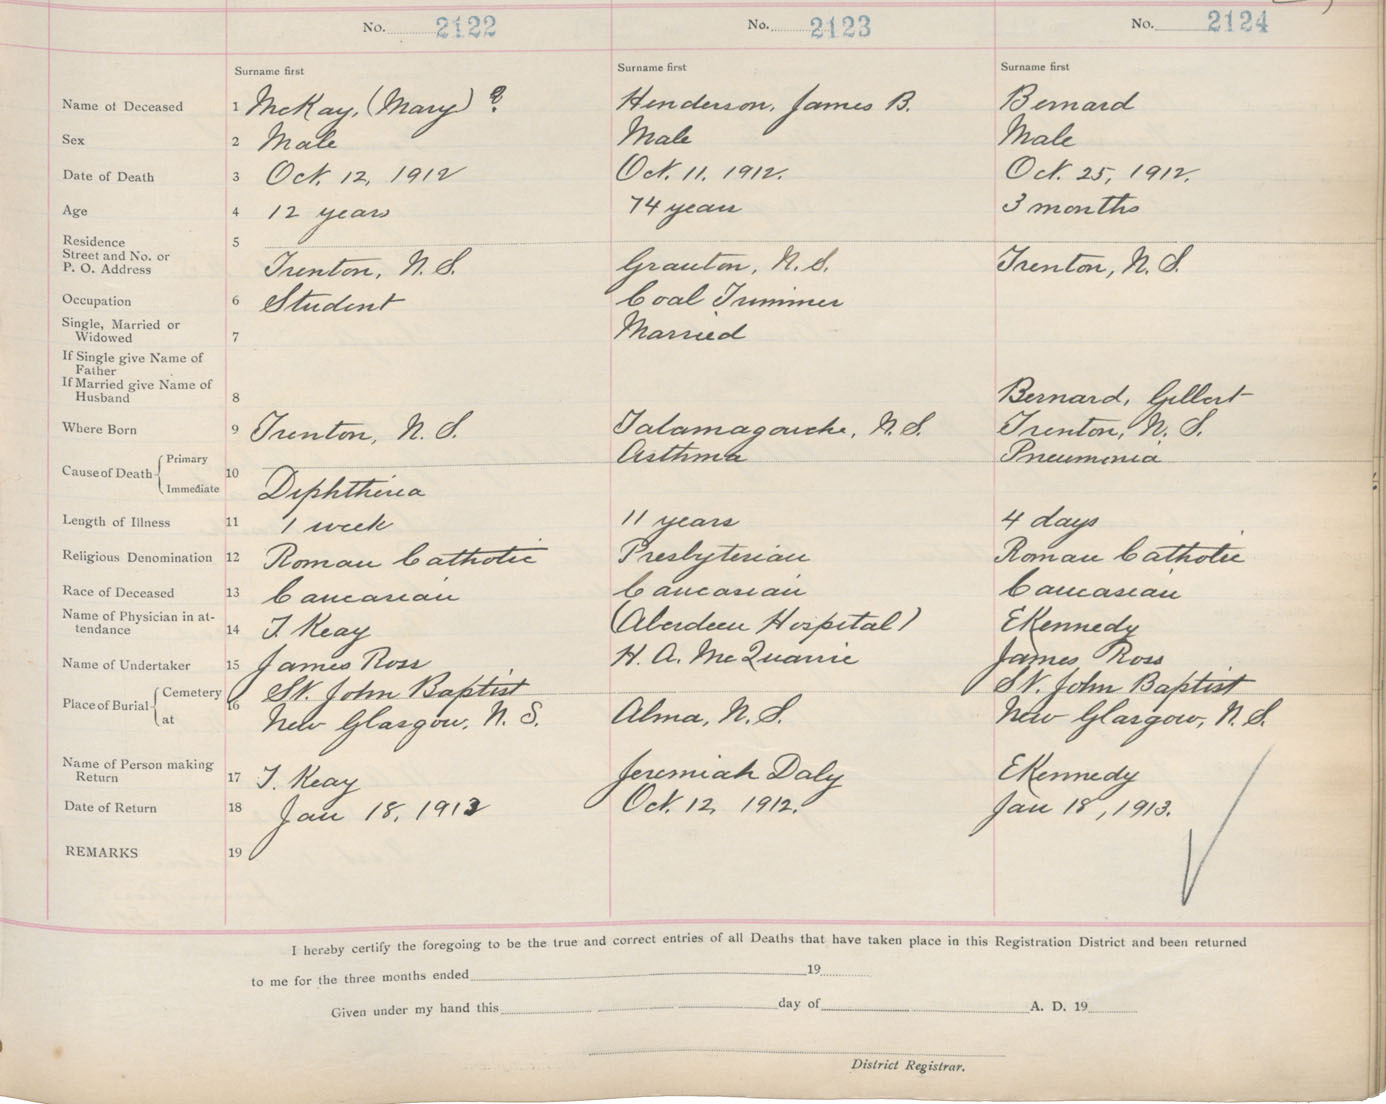 No. 2122 No. 2123 No. 2124
Surname first Surname first Surname first
Name of Deceased 1 McKay, (Mary) ? Henderson, James B. Bernard
Sex 2 Male Male Male
Date of Death 3 Oct. 12, 1912 Oct. 11. 1912. Oct. 25, 1912.
Age 4 12 years 74 years 3 months
Residence 5
Street and No. or
P. O. Address Trenton, N. S. Granton, N. S. Trenton, N. S.
Occupation 6 Student Coal Trimmer
Single, Married or
Widowed 7 Married
If Single give Name of
Father
If Married give Name of
Husband 8 Bernard, Gilbert
Where Born 9 Trenton, N. S. Tatamagouche, N. S. Trenton, N. S.
Cause of Death Primary 10 Asthma Pneumonia
Immediate Diphtheria
Length of Illness 11 1 week 11 years 4 days
Religious Denomination 12 Roman Catholic Presbyterian Roman Catholic
Race of Deceased 13 Caucasian Caucasian Caucasian
Name of Physician in at-
tendance 14 T. Keay (Aberdeen Hospital) E Kennedy
Name of Undertaker 15 James Ross H. A. McQuarrie James Ross
Place of Burial Cemetery 16 St. John Baptist St. John Baptist
at New Glasgow, N. S. Alma, N. S. New Glasgow, N. S.
Name of Person making
Return 17 T. Keay Jeremiah Daly E Kennedy
Date of Return 18 Jan 18, 1913 Oct. 12, 1912. Jan 18, 1913.
REMARKS 19
I hereby certify the foregoing to be the true and correct entries of all Deaths that have taken place in this Registration District and been returned
to me for the three months ended 19
Given under my hand this day of A. D. 19
District Registrar.